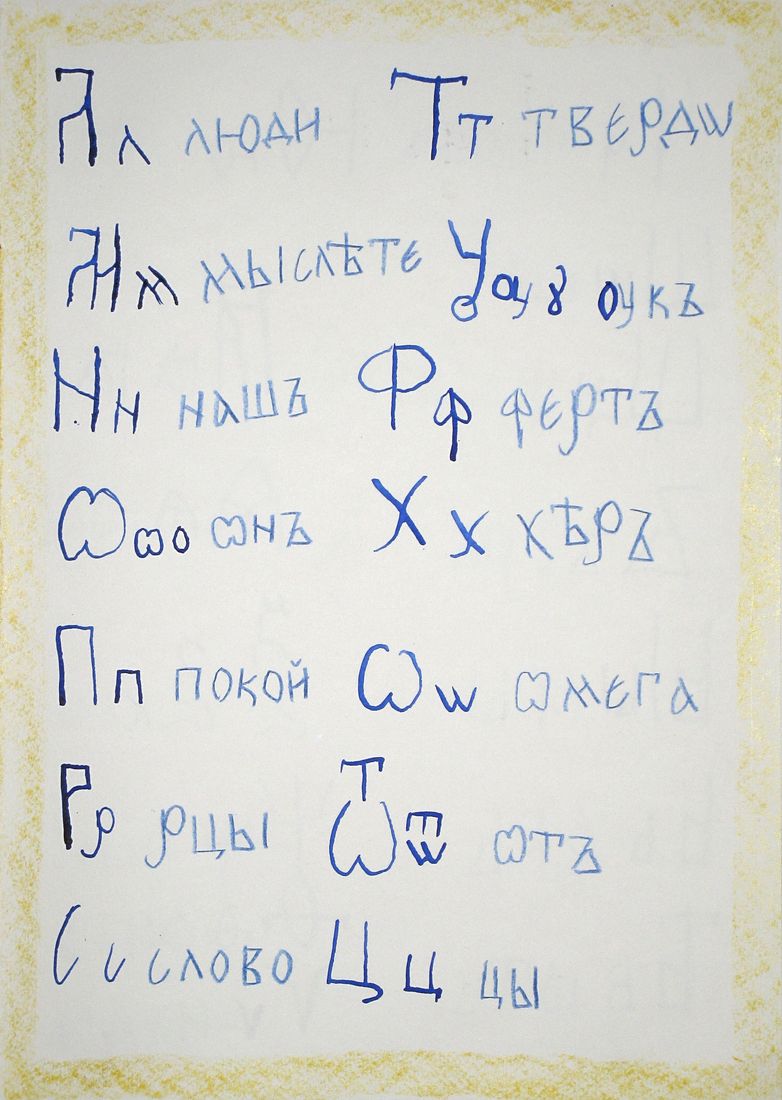 Л л люди Т т твердѡ
М м мыслѣте Ѹ ѹ ꙋ ѹкъ
Н н нашъ Ф ф фертъ
Ѡ ѡ о ѡнъ Х х хѣръ
П п покой Ѡ ѡ ѡмега
Р р рцы Ѿ ѿ ѡтъ
С с слово Ц ц цы